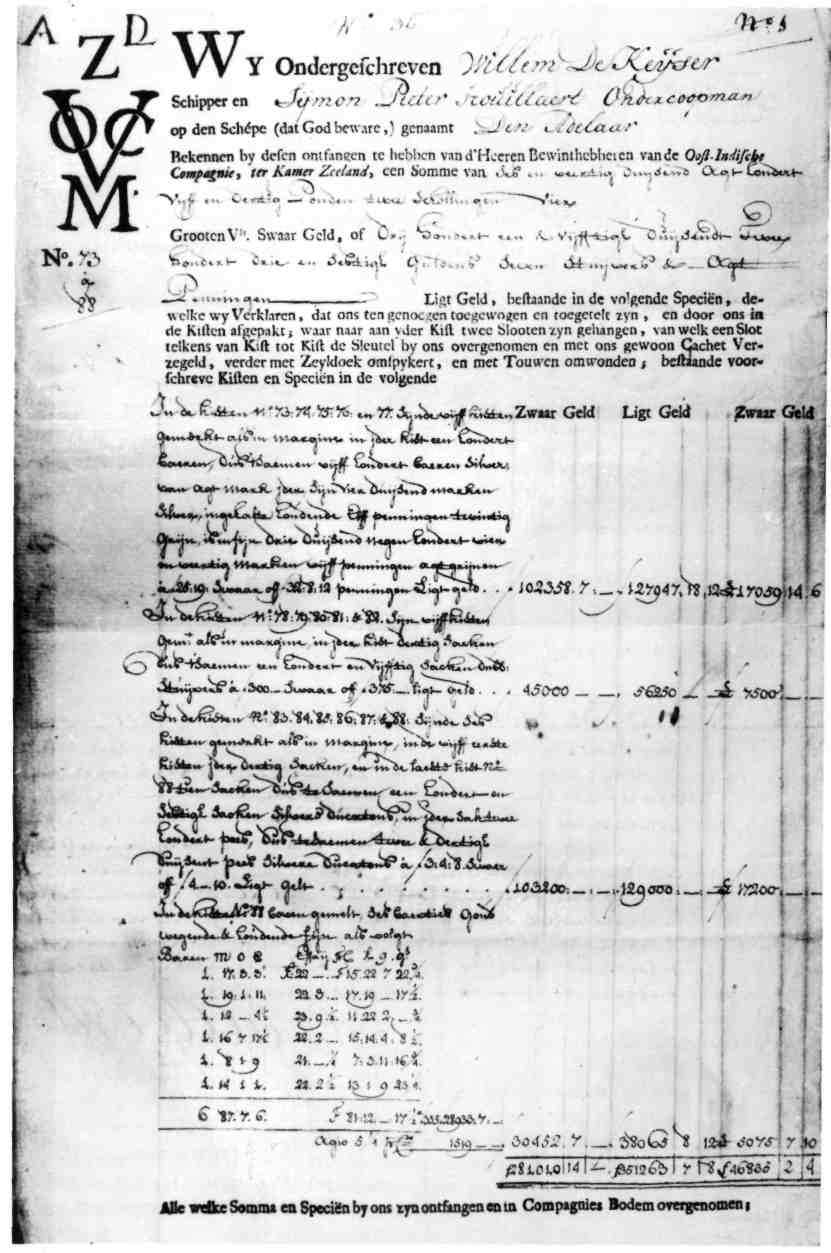 N.º 1
A Z D
VOC
M
WY Ondergeschreven Willem De Keijser
Schipper en Sijmon Pieter Ondercoopman
op den Schépe (dat God beware,) genaamt Den Adelaar
Bekennen by desen ontfangen te hebben van d'Heeren Bewinthebberen van de Oost-Indische
Compagnie, ter Kamer Zeeland, een Somme van Ses en veertig Duijsend Agt Hondert
Vijf en Dertig Ponden twee Schellingen Vier
Grooten Vls. Swaar Geld, of Drij Hondert een & Vijfftigh Duijsendt Twee
Hondert Drie en Sestigh Guldens Seven Stuijvers & Agt
No. 73
a
88
Penningen Ligt Geld, bestaande in de volgende Speciën, de-
welke wy Verklaren, dat ons ten genoegen toegewogen en toegetelt zyn, en door ons in
de Kisten afgepakt; waar naar aan yder Kist twee Slooten zyn gehangen, van welk een Slot
telkens van Kist tot Kist de Sleutel by ons overgenomen en met ons gewoon Cachet Ver-
zegeld, verder met Zeyldoek omspykert, en met Touwen omwonden; bestaande voor-
schreve Kisten en Speciën in de volgende
In de kisten Nº 73. 74. 75. 76. en 77. Sijnde vijff kisten Zwaar Geld Ligt Geld Zwaar Geld
gemerkt als in margine in jder kist een Hondert
baeren, Dus t'Saemen vijff Hondert baeren Silver,
van agt mark jder Sijn vier Duijsend marken
Silver, ingelaste Houdende Elff penningen twintig
Grijn, is in fijn Drie Duijsend Negen Hondert vier
en veertig marken vijff penningen agt grijnen
à 25:19: Swaar of 32:8:12 penningen Ligt geld. 102358. 7. — 127947. 18. 12 £ 17059 14 6
In de kisten Nº 78: 79: 80: 81: & 82. Sijn vijff kisten
Gem.t als in margine, in jder kist dertig Sacken
Dus t'Saemen een Hondert en Vijfftig Sacken Dubb:
Stuijvers à 300 — Swaar of 375 — ligt geld. 45000 — — 56250 — — £ 7500 — —
In de kisten Nº 83. 84. 85. 86. 87. & 88: Sijnde Ses
kisten gemerkt als in margine, in de vijff eerste
kisten jder dertig Sacken, en in de laeste kist Nº
88 tien Sacken Dus te Saemen een Hondert en
Sestigh Sacken Silvere Ducatons, in jder Sak twee
Hondert pees, Dus te Saemen twee & Dertigh
Duijsent pees Silvere Ducatons à ƒ 3:4:8. Swaer
of ƒ 4 — 10. Ligt Gelt 103200: — — 129000: — £ 17200: — —
In de kist Nº 88 baeren gemelt, Ses baerties Goud
wegende & Houdende fijn als volgt
Baren m o e
1. 17. 3. 3.
1. 19. 1. 11.
1. 12 —
1. 16 7
1. 8 1 9
1. 14 1
6 87. 7. 6.
Agio 5 1519 — 30452. 7. — 38065 8 12 £ 5075 7 10
ƒ281010 14 — ƒ351263 7 8 £46835 2 4
Alle welke Somma en Speciën by ons zyn ontfangen en in Compagnies Bodem overgenomen;